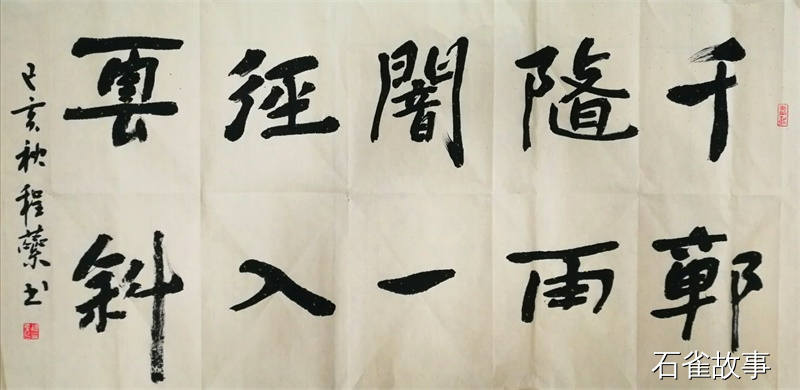 千鄣
隨雨
闇一
徑入
雲斜
己亥秋程书
石雀故事